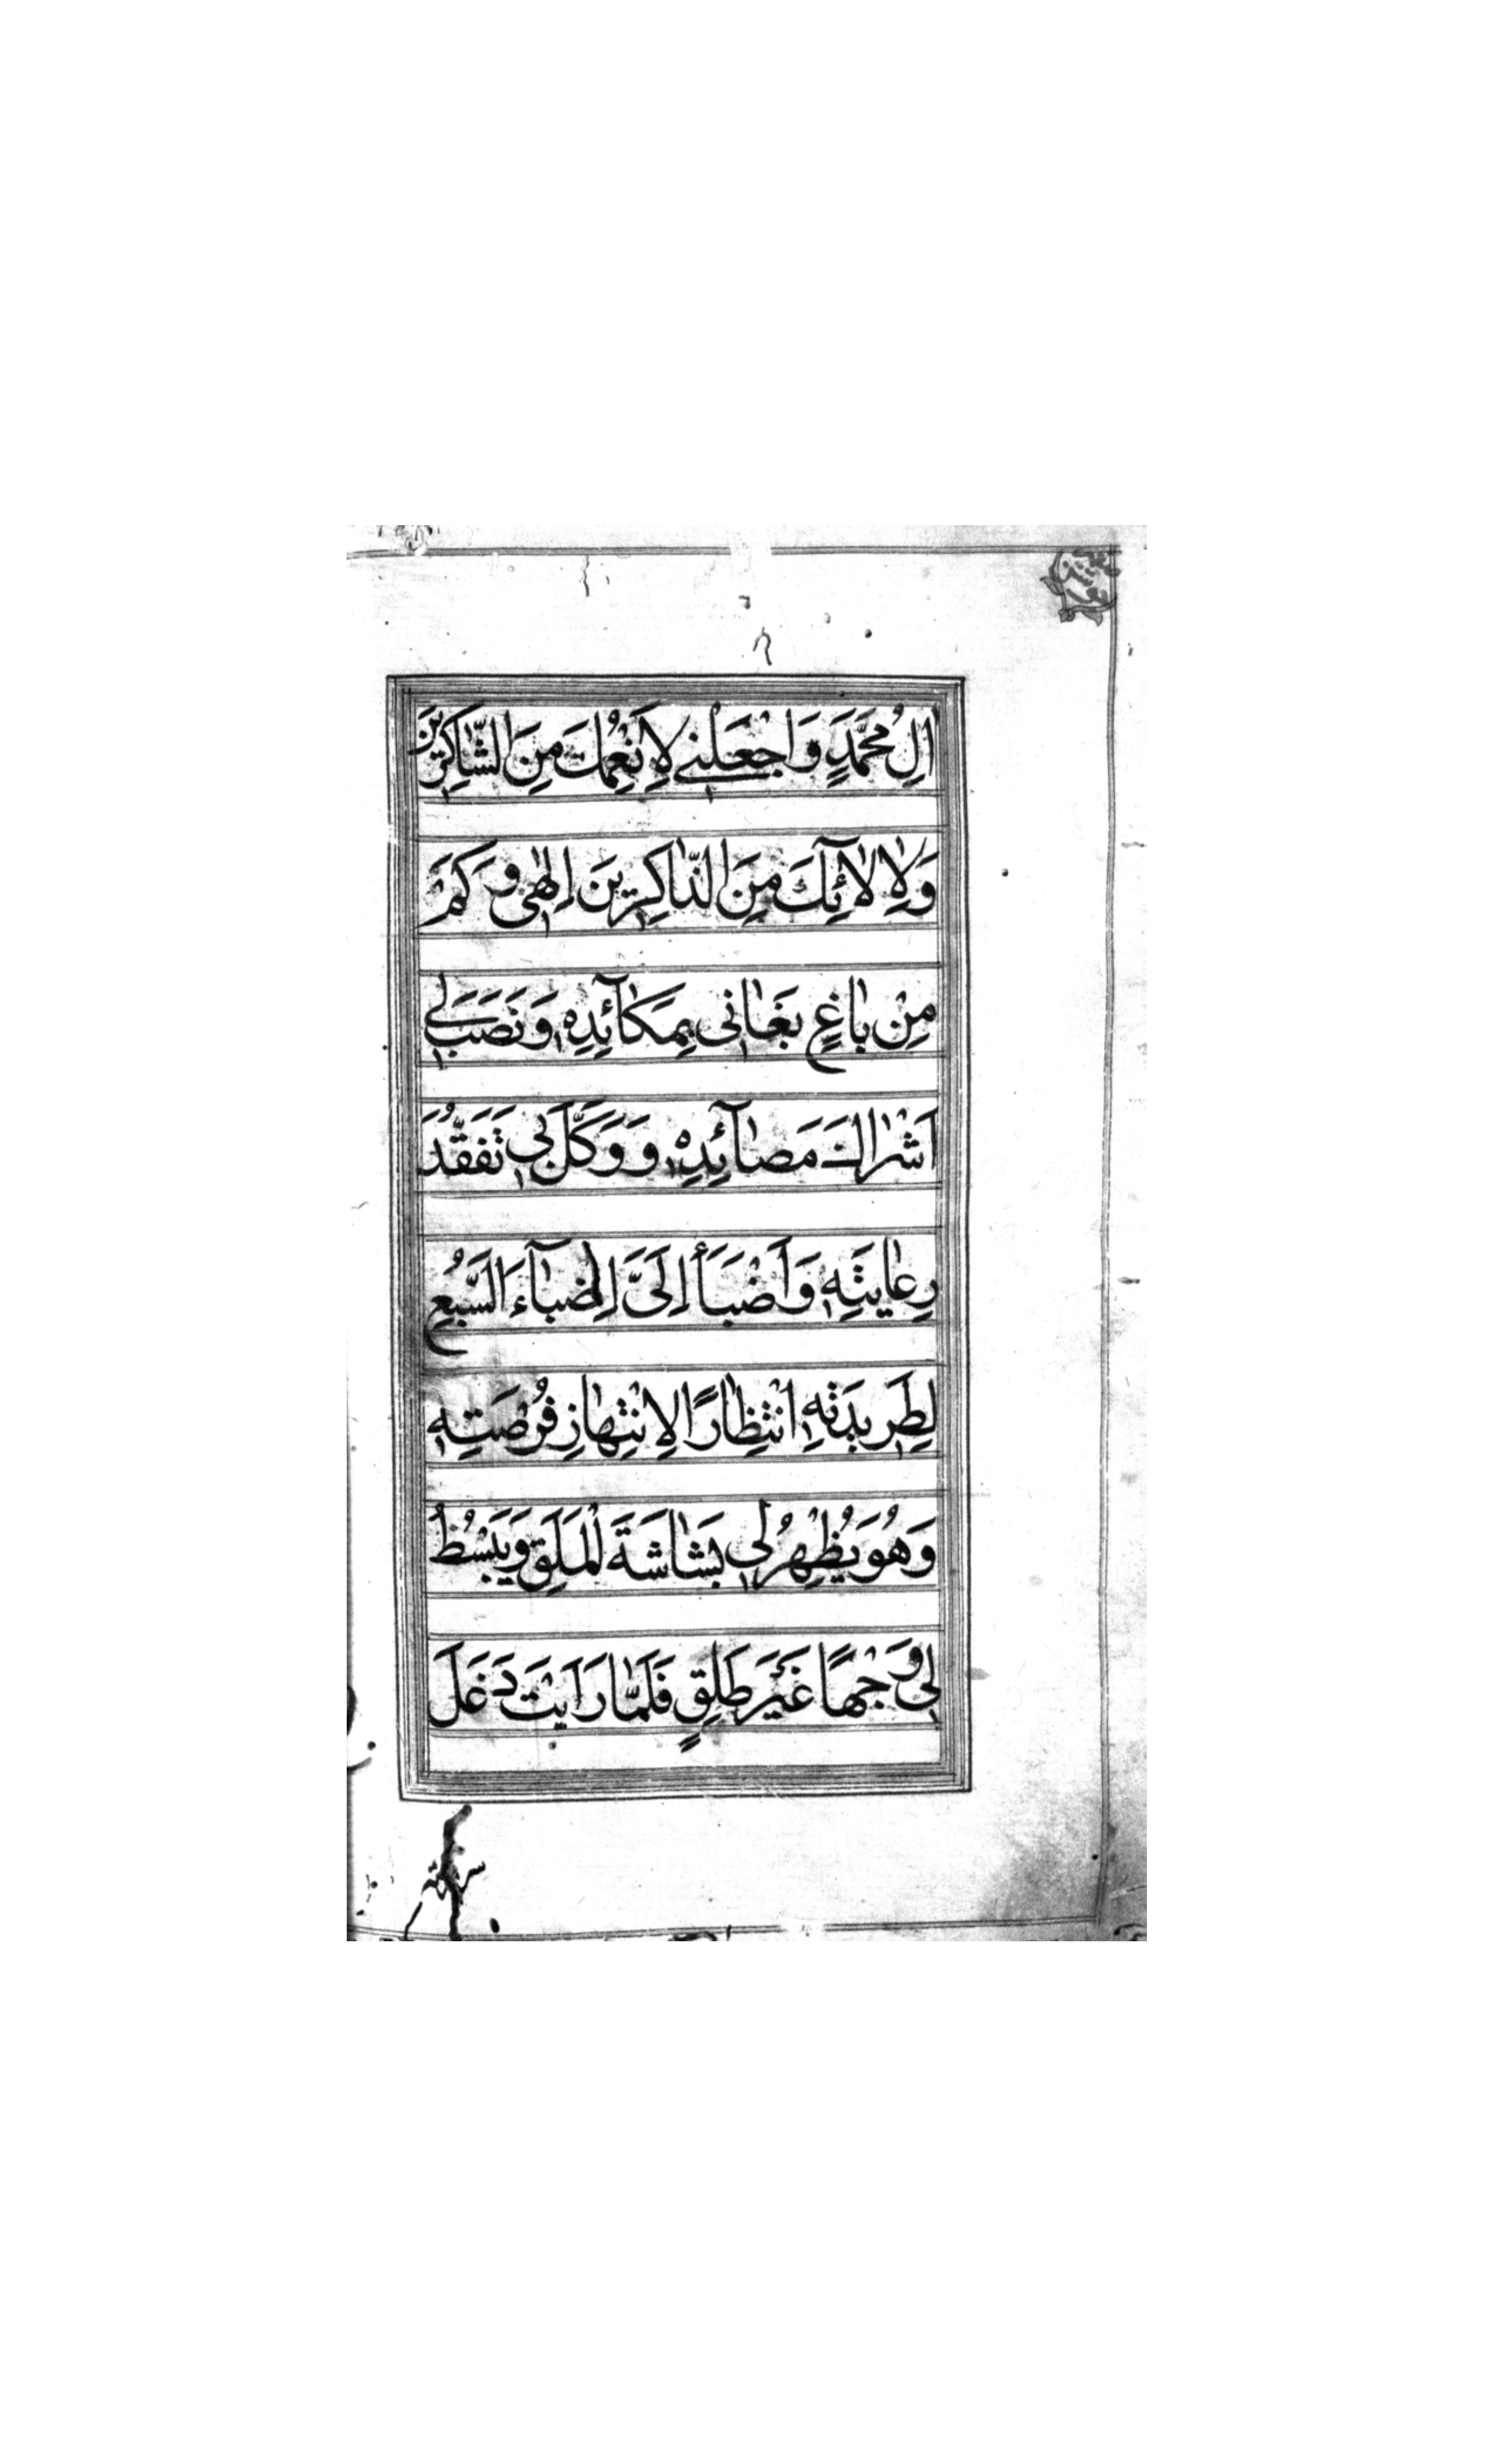 اٰلِ مُحَمَّدٍ وَاجْعَلْنٖی لِاَنْعُمِكَ مِنَ الشّٰاكِرٖینَ
وَلِاٰلٰآئِكَ مِنَ الذّٰاكِرٖینَ اِلٰهٖی وَكَمْ
مِنْ بٰاغٍ بَغٰانٖی بِمَكٰآئِدِهٖ وَنَصَبَ لٖی
اَشْرٰاكَ مَصٰآئِدِهٖ وَوَكَّلَ بٖی تَفَقُّدَ
رِعٰایَتِهٖ وَاَضْبَأَ اِلَیَّ اِضْبٰآءَ السَّبُعِ
لِطَرٖیدَتِهِ انْتِظٰارًا لِانْتِهٰازِ فُرْصَتِهٖ
وَهُوَ یُظْهِرُ لٖی بَشٰاشَةَ الْمَلَقِ وَیَبْسُطُ
لٖی وَجْهًا غَیْرَ طَلِقٍ فَلَمّٰا رَاَیْتَ دَغَلَ